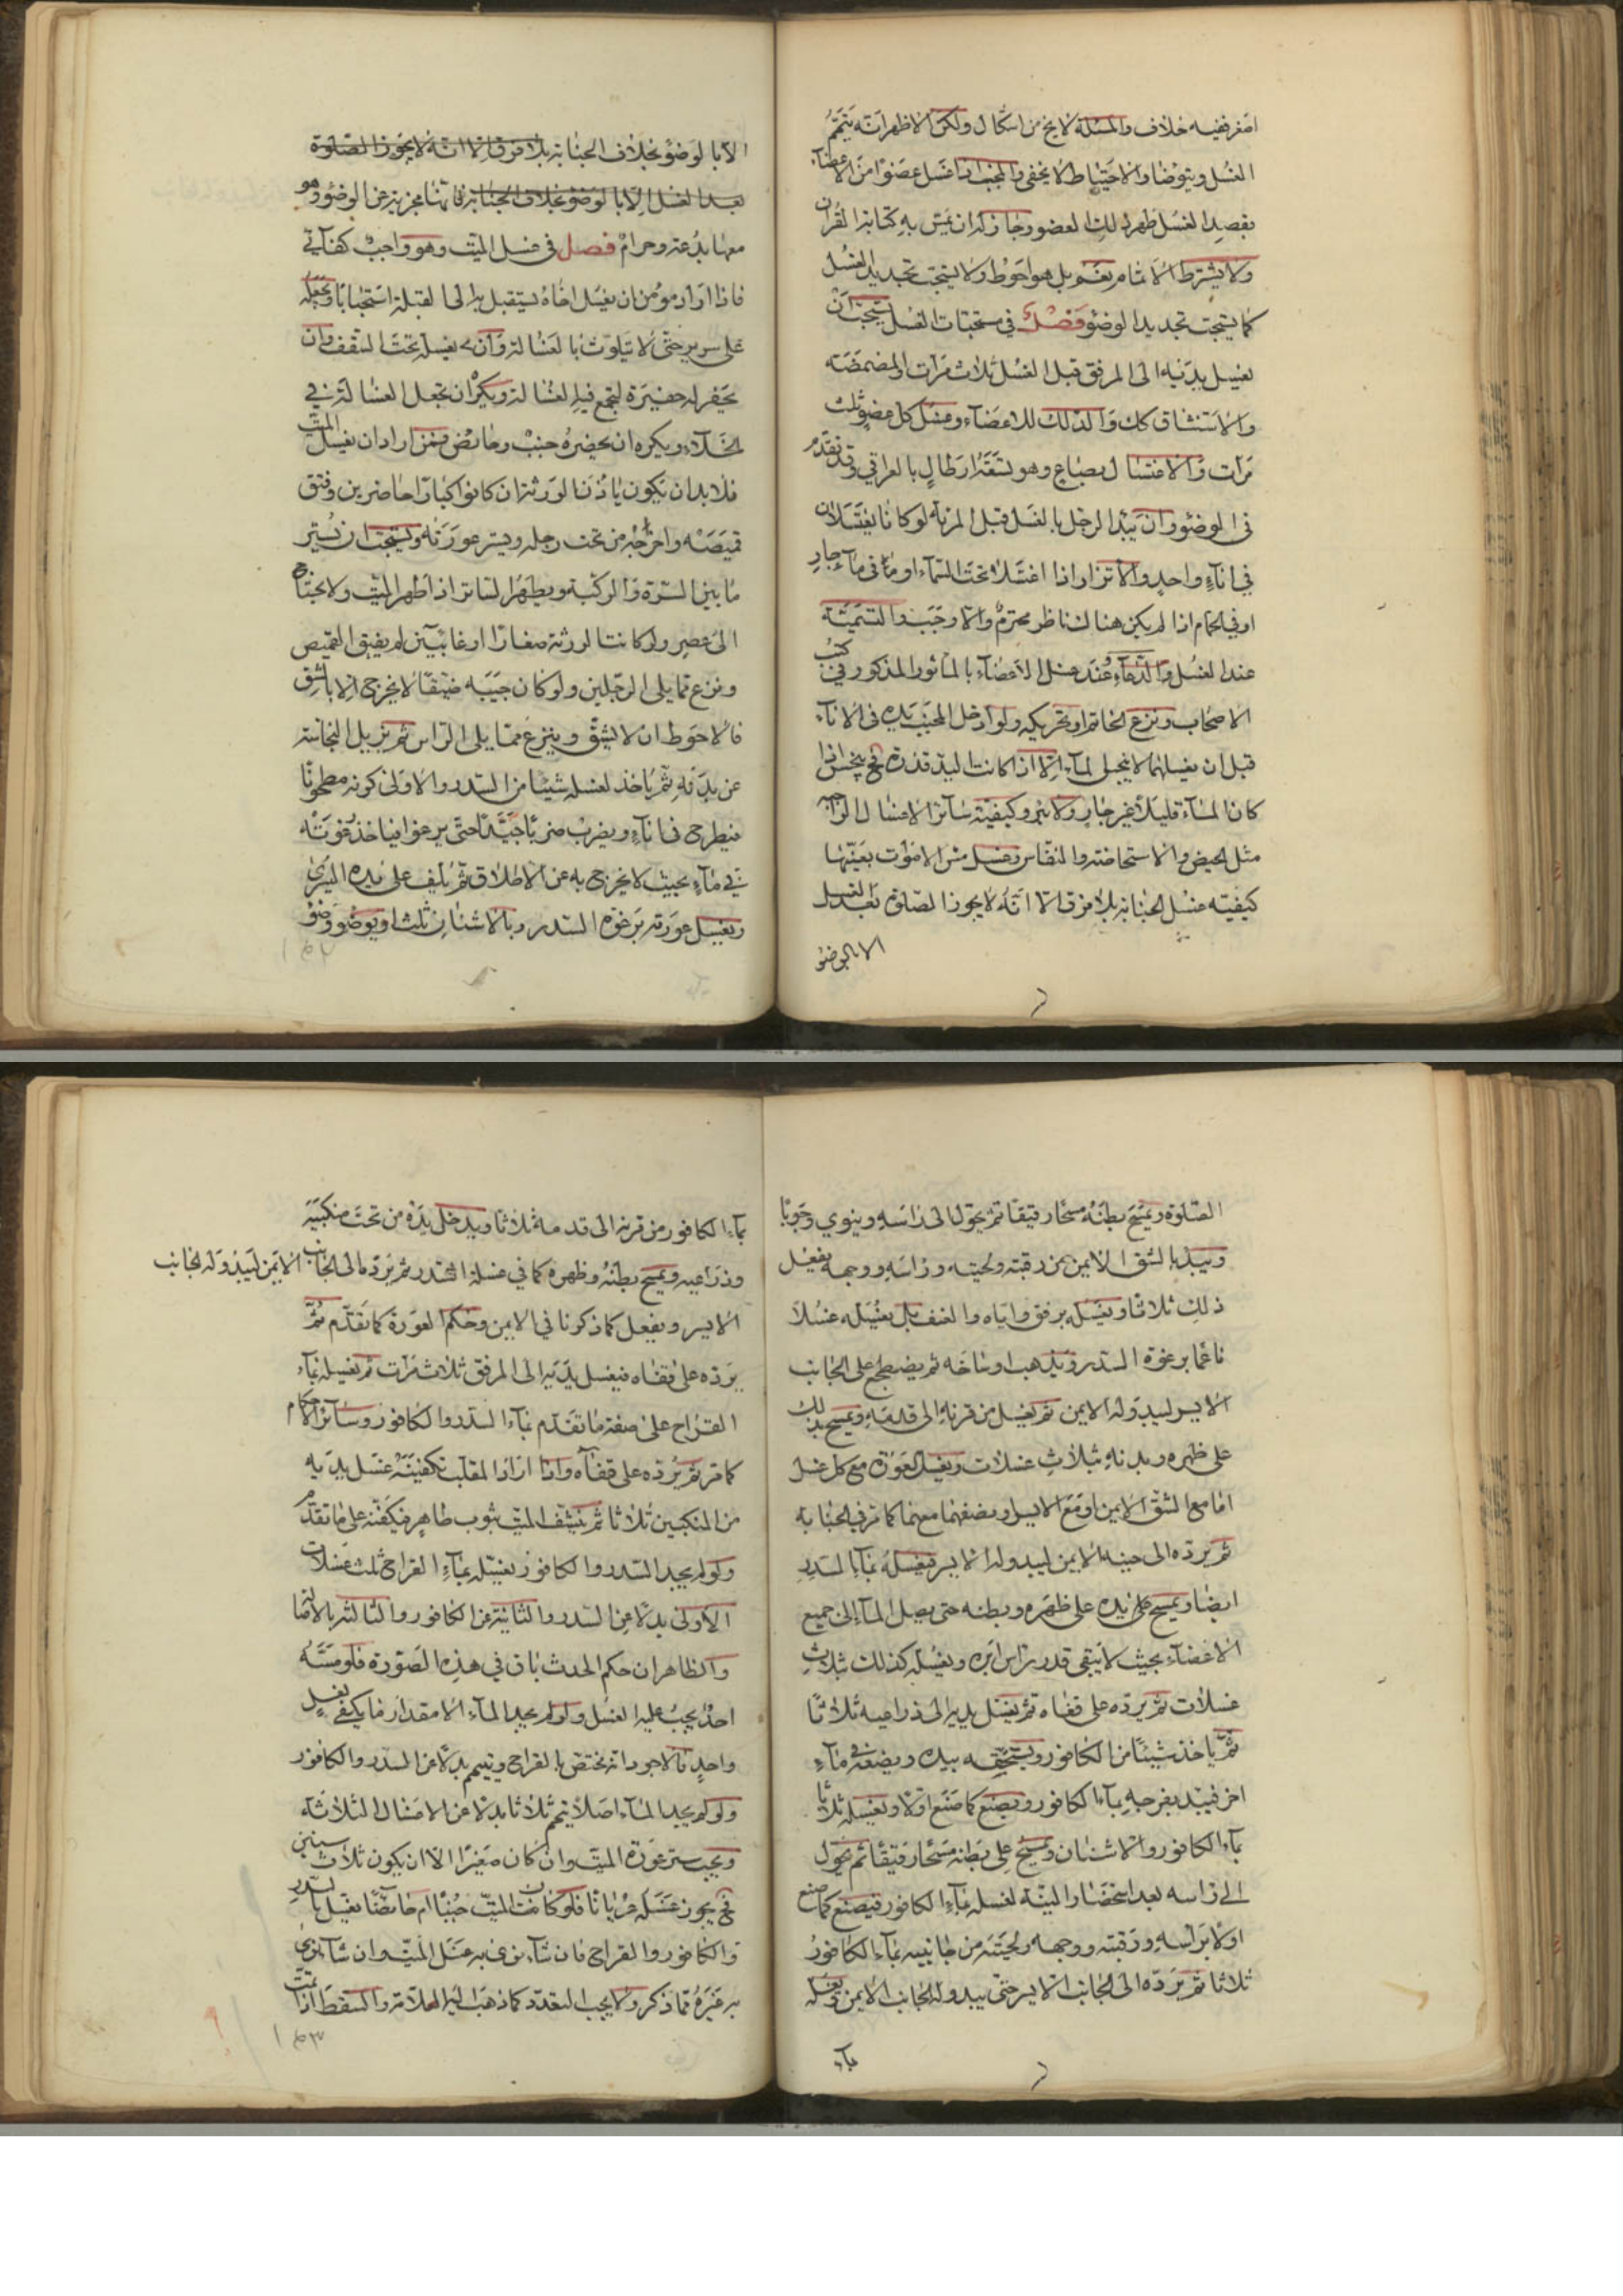 اصغر ففيه خلاف والمسئلة لا يخ من اشكال ولكن الاظهر انه يتم
الغسل ويتوضا والاحتياط لا يخفى والمجنب اذا غسل عضوا من الاعضاء
بقصد الغسل طهر ذلك العضو وجاز له ان يمس به كتابة القران
ولا يشترط الاتمام نعم بل هو احوط ولا يستحب تجديد الغسل
كما يستحب تجديد الوضوء فصل في مستحبات الغسل يستحب ان
يغسل يديه الى المرفق قبل الغسل ثلاث مرات والمضمضة
والاستنشاق كك والدلك للاعضاء وغسل كل عضو ثلث
مرات والاغتسال بصاع وهو تسعة ارطال بالعراقي وقد تقدم
في الوضوء وان يبدا الرجل بالغسل قبل المرئة لو كانا يغتسلان
في اناء واحد والاتزار اذا اغتسلا تحت السماء او في ماء جار
او في الحمام اذا لم يكن هناك ناظر محترم والا وجب والتسمية
عند الغسل والدعاء عند غسل الاعضاء بالماثور المذكور في كتب
الاصحاب ونزع الخاتم او تحريكه ولو ادخل المجنب يده في الاناء
قبل ان يغسلها لا ينجس الماء الا اذا كانت اليد قذرة فح ينجس اذا
كان الماء قليلا غير جار ولا بئر وكيفية سائر الاغسال الواجبه
مثل الحيض والاستحاضة والنفاس وغسل مس الاموات بعينها
كيفيته غسل الجنابة بلا فرق الا انه لا يجوز الصلوة بعد الغسل
الا بالوضوء
الا بالوضوء بخلاف الجنابة بلا فرق الا انه لا يجوز الصلوة
بعد الغسل الا بالوضوء بخلاف الجنابة فانها مجزية عن الوضوء وهو
معها بدعة وحرام فصل في غسل الميت وهو واجب كفائي
فاذا اراد مومن ان يغسل اخاه يستقبل به الى القبلة استحبابا ويجعله
على سرير حتى لا يتلوث بالغسالة وان يغسله تحت السقف وان
يحفر له حفيرة لتجمع فيه الغسالة ويكره ان تجعل الغسالة في
الخلاء ويكره ان يحضره جنب وحائض فمن اراد ان يغسل الميت
فلا بد ان يكون ياذن الورثة ان كانوا كبارا حاضرين وفتق
قميصه واخراجه من تحت رجله ويستر عورته ويستحب ان يستر
ما بين السترة والركبة ويطهر الساتر اذا طهر الميت ولا يحتاج
الى عصر ولو كانت الورثة صغارا او غائبين لم يفتق القميص
ونزع مما يلى الرجلين ولو كان جيبه ضيقا لا يخرج الا بالشق
فالاحوط ان لا يشق وينزع مما يلى الراس ثم تزيل النجاسة
عن بدنه ثم ياخذ لغسله شيئا من السدر والاولى كونه مطحونا
فيطرح في اناء ويضرب ضربا جيدا حتى يرغوا فياخذ رغوته
في ماء بحيث لا يخرج به عن الاطلاق ثم يلف على يده اليسرى
ويغسل عورته برغوة السدر وبالاشنان ثلثا ويوضوه وضوء
الصلوة ويمسح بطنه مسحا رقيقا ثم يتحول الى راسه وينوي وجوبا
ويبد بالشق الايمن من رقبته ولحيته وراسه ووجهه يفعل
ذلك ثلاثا ويغسله برفق واياه والعنف بل يغسله غسلا
ناعما برغوة السدر ويذهب اوساخه ثم يضطجع على الجانب
الايسر ليبدو له الايمن ثم يغسل من قرنه الى قدمه ويمسح بذلك
على ظهره وبدنه بثلاث غسلات ويغسل العورة مع كل غسل
اما مع الشق الايمن او مع الايسر او بضعفهما معهما كما مر في الجنابه
ثم يرده الى جنبه الايمن ليبدو له الايسر فيغسله بماء السدر
ايضا ويمسح على يده على ظهره وبطنه حتى يصل الماء الى جميع
الاعضاء بحيث لا يبقى قدر راس ابره ويغسله كذلك بثلاث
غسلات ثم يرده على قفاه ثم يغسل يديه الى ذراعيه ثلاثا
ثم ياخذ شيئا من الكافور ويسحقه بيده ويضعه في ماء
اخر فيبد بفرجه بماء الكافور ويصنع كما صنع اولا ويغسله ثلاثا
بماء الكافور والاشنان ويمسح على بطنه مسحا رقيقا ثم يتحول
الى راسه بعد استحضار النية لغسله بماء الكافور فيصنع كما صنع
اولا براسه ورقبته ووجهه ولحيته من جانبيه بماء الكافور
ثلاثا ثم يرده الى الجانب الايسر حتى يبدو له الجانب الايمن ويغسله
بماء
بماء الكافور من قرنه الى قدمه ثلاثا ويدخل يده من تحت منكبيه
وذراعيه ويمسح بطنه وظهره كما في غسلة السدر ثم يرده الى الجانب الايمن ليبدو له الجانب
الايسر ويفعل كما ذكرنا في الايمن وحكم العورة كما تقدم ثم
يرده على قفاه فيغسل يديه الى المرفق ثلاث مرات ثم يغسله بماء
القراح على صفة ما تقدم بماء السدر والكافور وسائر الاحكام
كما مر ثم يرده على قفاه واذا اراد المقلب تكفينه غسل يديه
من المنكبين ثلاثا ثم ينشف الميت بثوب طاهر فيكفنه على ما تقدم
ولو لم يجد السدر والكافور يغسله بماء القراح ثلث غسلات
الاولى بدلا عن السدر والثانية عن الكافور والثالثة بالاصالة
والظاهر ان حكم الحدث باق في هذه الصورة فلو مسه
احد يجب عليه الغسل ولو لم يجد الماء الا مقدار ما يكفي لغسل
واحد فالاجود انه يختص بالقراح وتيمم بدلا عن السدر والكافور
ولو لم يجد الماء اصلا تيمم ثلاثا بدلا عن الاغسال الثلاثة
ويجب ستر عورة الميت وان كان صغيرا الا ان يكون ثلاث سنين
فح يجوز غسله عريانا فلو كان الميت جنبا ام حائضا يغسل بالسدر
والكافور والقراح فان شاء نوى به غسل الميت وان شاء نوى
به غيره مما ذكر ولا يجب التعدد كما ذهب اليه العلامة والسقط اذا تمت
١٥٢
١٥٣